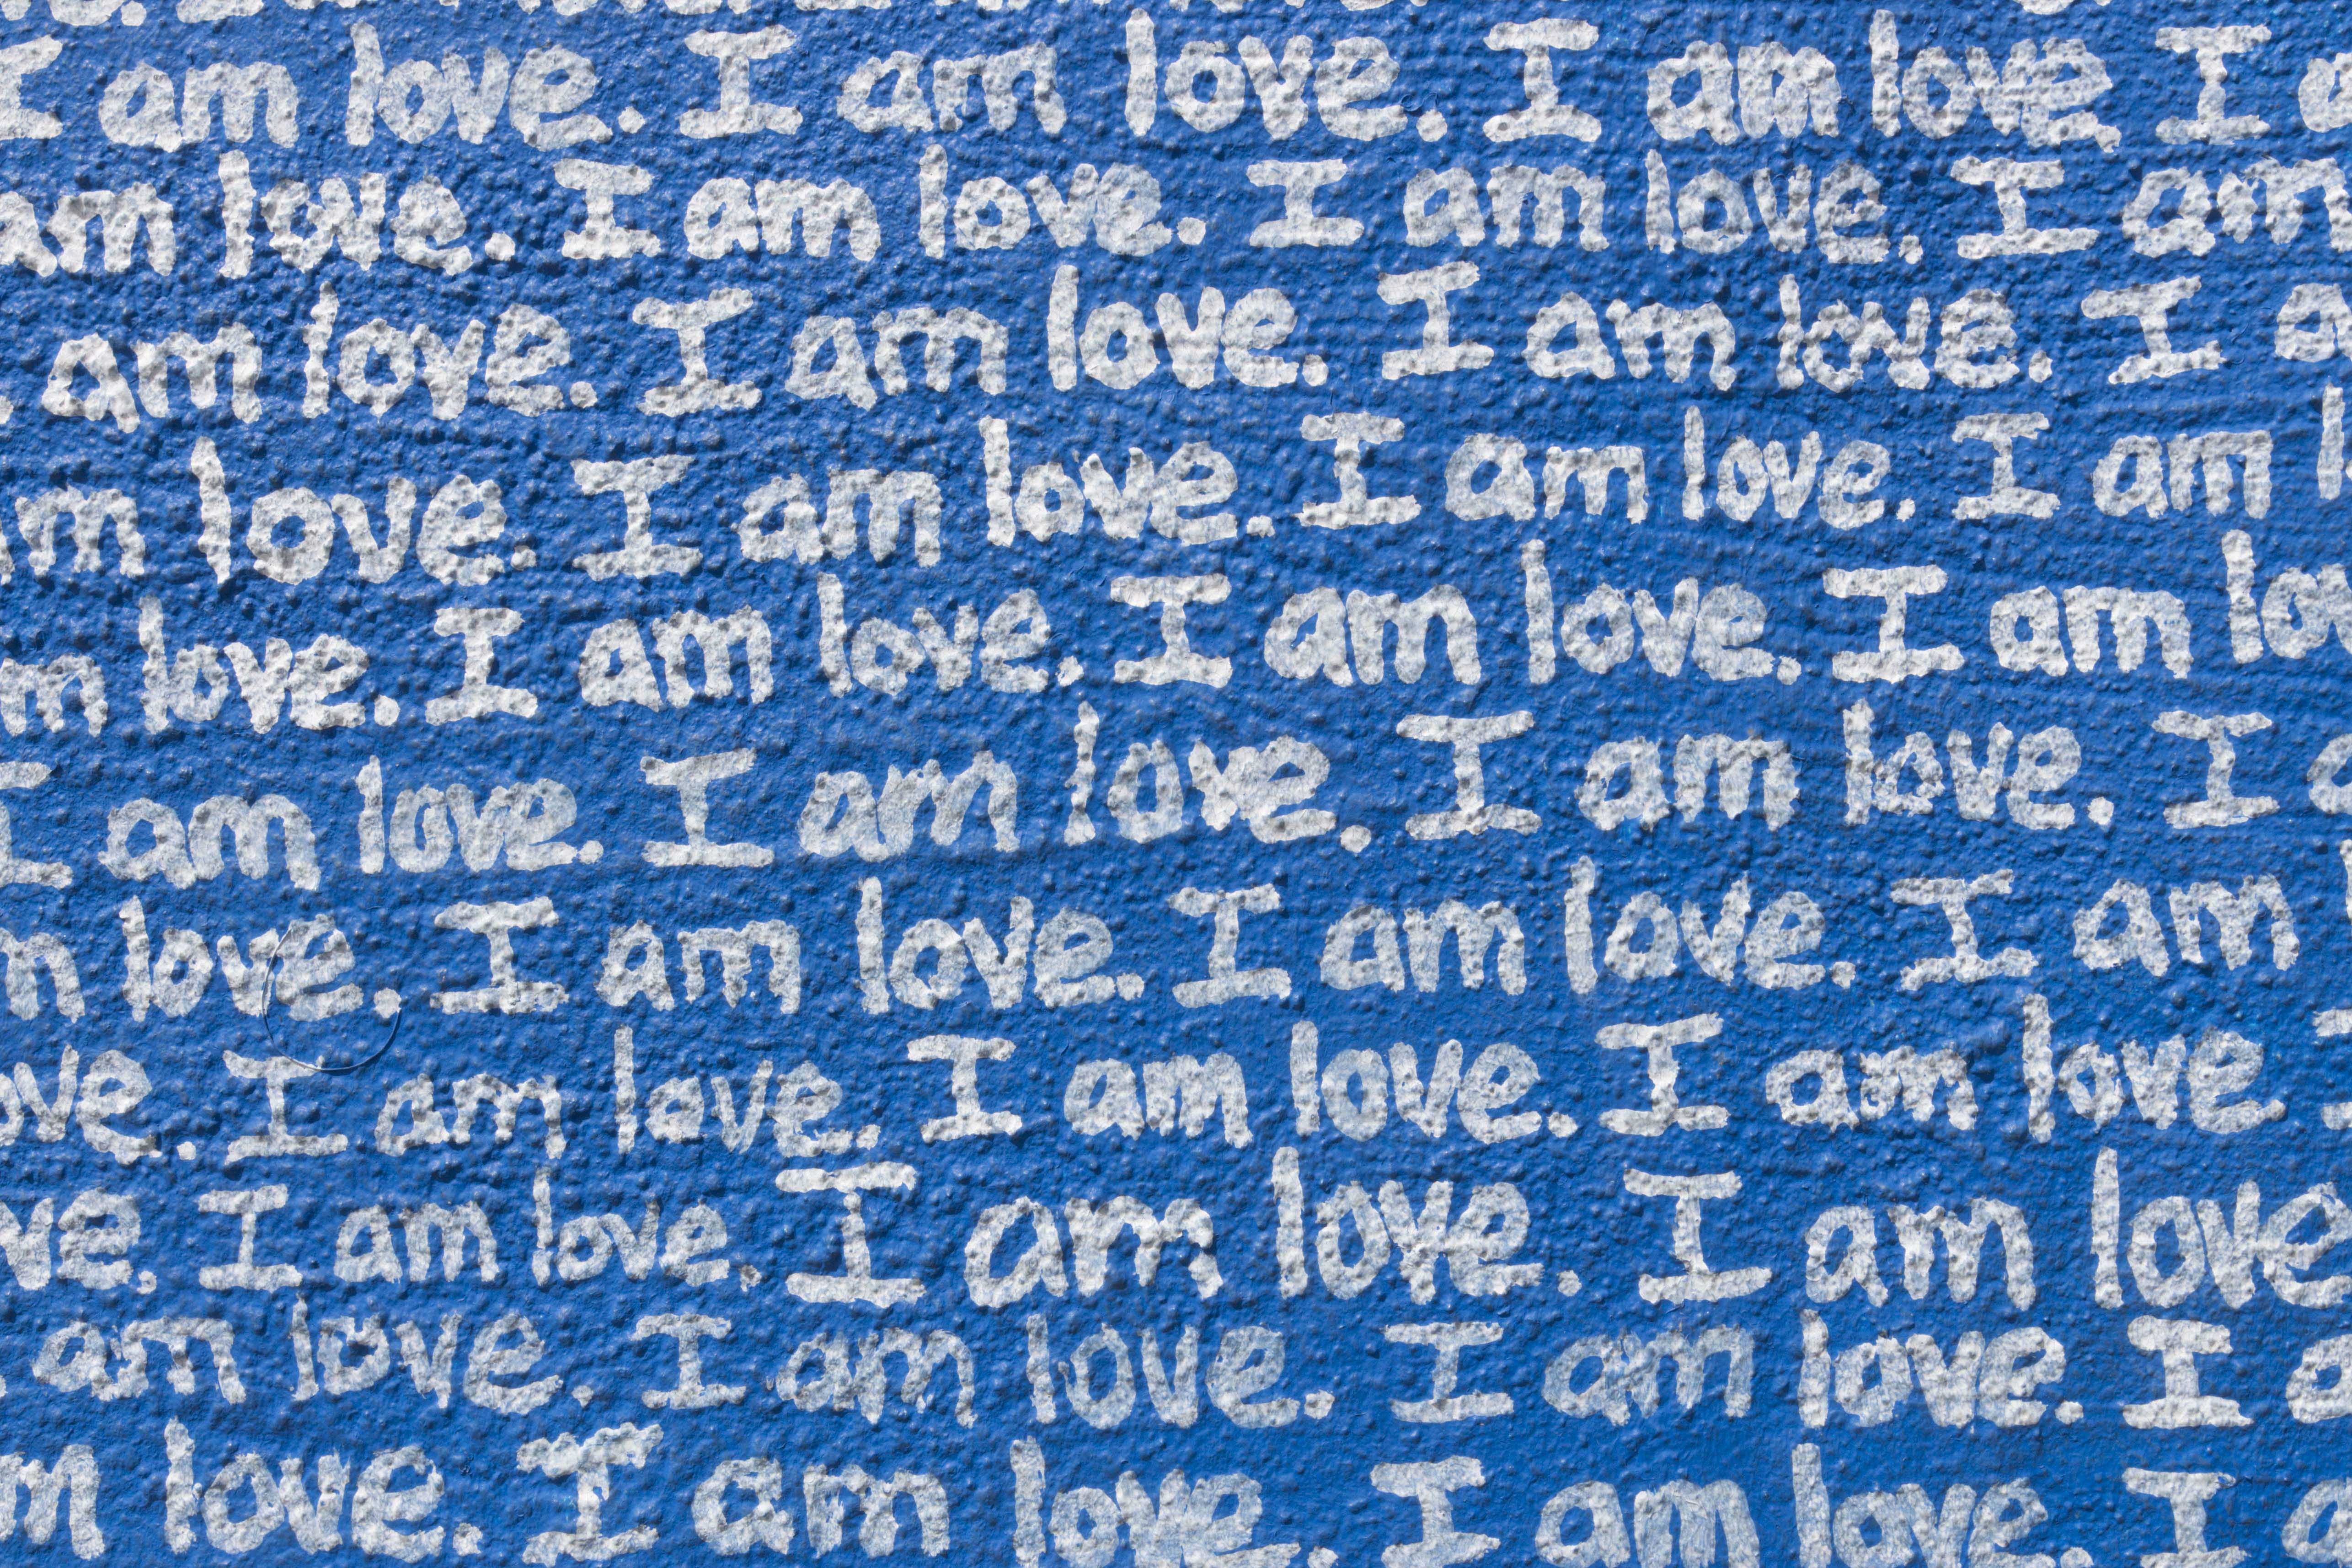 I am love. I am love. I am love. I
am love. I am love. I am love. I am
am love. I am love. I am love. I a
m love. I am love. I am love. I am l
m love. I am love. I am love. I am lov
I am love. I am love. I am love. I a
m love. I am love. I am love. I am
ove. I am love. I am love. I am love.
ve. I am love. I am love. I am love
am love. I am love. I am love. I a
m love. I am love. I am love. I a